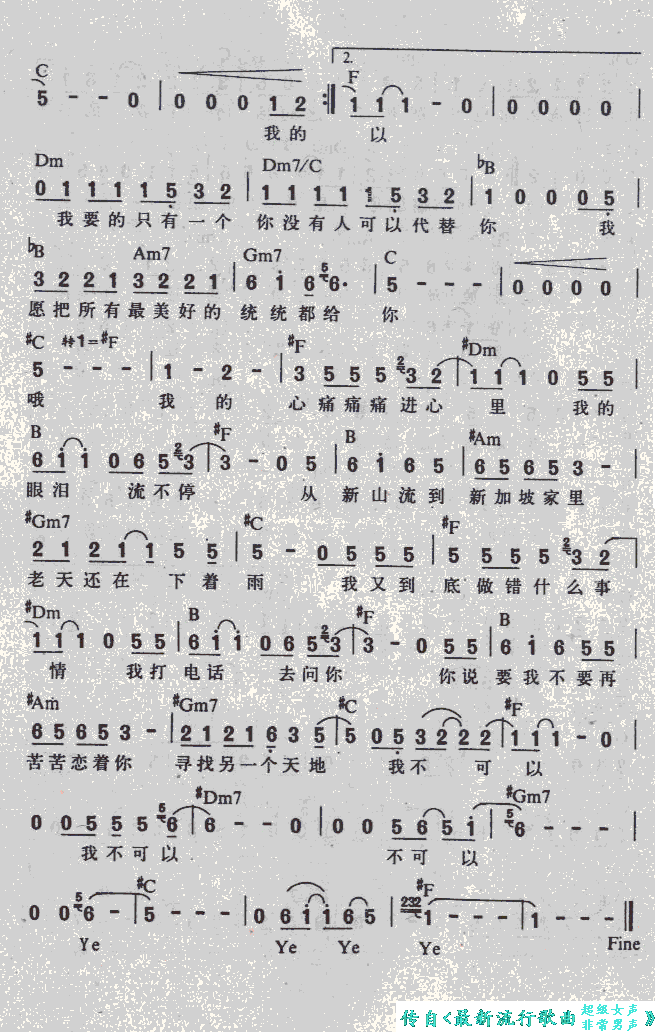 2.
C F
5 - - 0 | 0 0 0 1 2 :‖ 1 1 1 - 0 | 0 0 0 0 |
我的 以
Dm Dm7/C ♭B
0 1 1 1 1 5 3 2 | 1 1 1 1 1 5 3 2 | 1 0 0 0 5 |
我要的只有一个 你没有人可以代替 你 我
♭B Am7 Gm7 C
3 2 2 1 3 2 2 1 | 6 i 6 5 6· | 5 - - - | 0 0 0 0 |
愿把所有最美好的 统统都给 你
♯C 转1=♯F ♯F ♯Dm
5 - - - | 1 - 2 - | 3 5 5 5 2 3 2 | 1 1 1 0 5 5 |
哦 我 的 心痛痛痛进心 里 我的
B ♯F B ♯Am
6 i i 0 6 5 2 3 | 3 - 0 5 | 6 i 6 5 | 6 5 6 5 3 - |
眼泪 流不停 从 新山流到 新加坡家里
♯Gm7 ♯C ♯F
2 1 2 1 1 5 5 | 5 - 0 5 5 5 | 5 5 5 5 2 3 2 |
老天还在 下着 雨 我又到 底做错什么事
♯Dm B ♯F B
1 1 1 0 5 5 | 6 i i 0 6 5 2 3 | 3 - 0 5 5 | 6 i 6 5 5 |
情 我打 电话 去问你 你说 要我不要再
♯Am ♯Gm7 ♯C ♯F
6 5 6 5 3 - | 2 1 2 1 6 3 5 | 5 0 5 3 2 2 2 | 1 1 1 - 0 |
苦苦恋着你 寻找另一个天地 我不 可 以
♯Dm7 ♯Gm7
0 0 5 5 5 5 6 | 6 - - 0 | 0 0 5 6 5 i | 5 6 - - - |
我不可以 不可 以
♯C ♯F
0 0 5 6 - | 5 - - - | 0 6 i i 6 5 | 232 1 - - - | 1 - - - ‖
Ye Ye Ye Ye Fine
传自<最新流行歌曲 超级女声 非常男声》